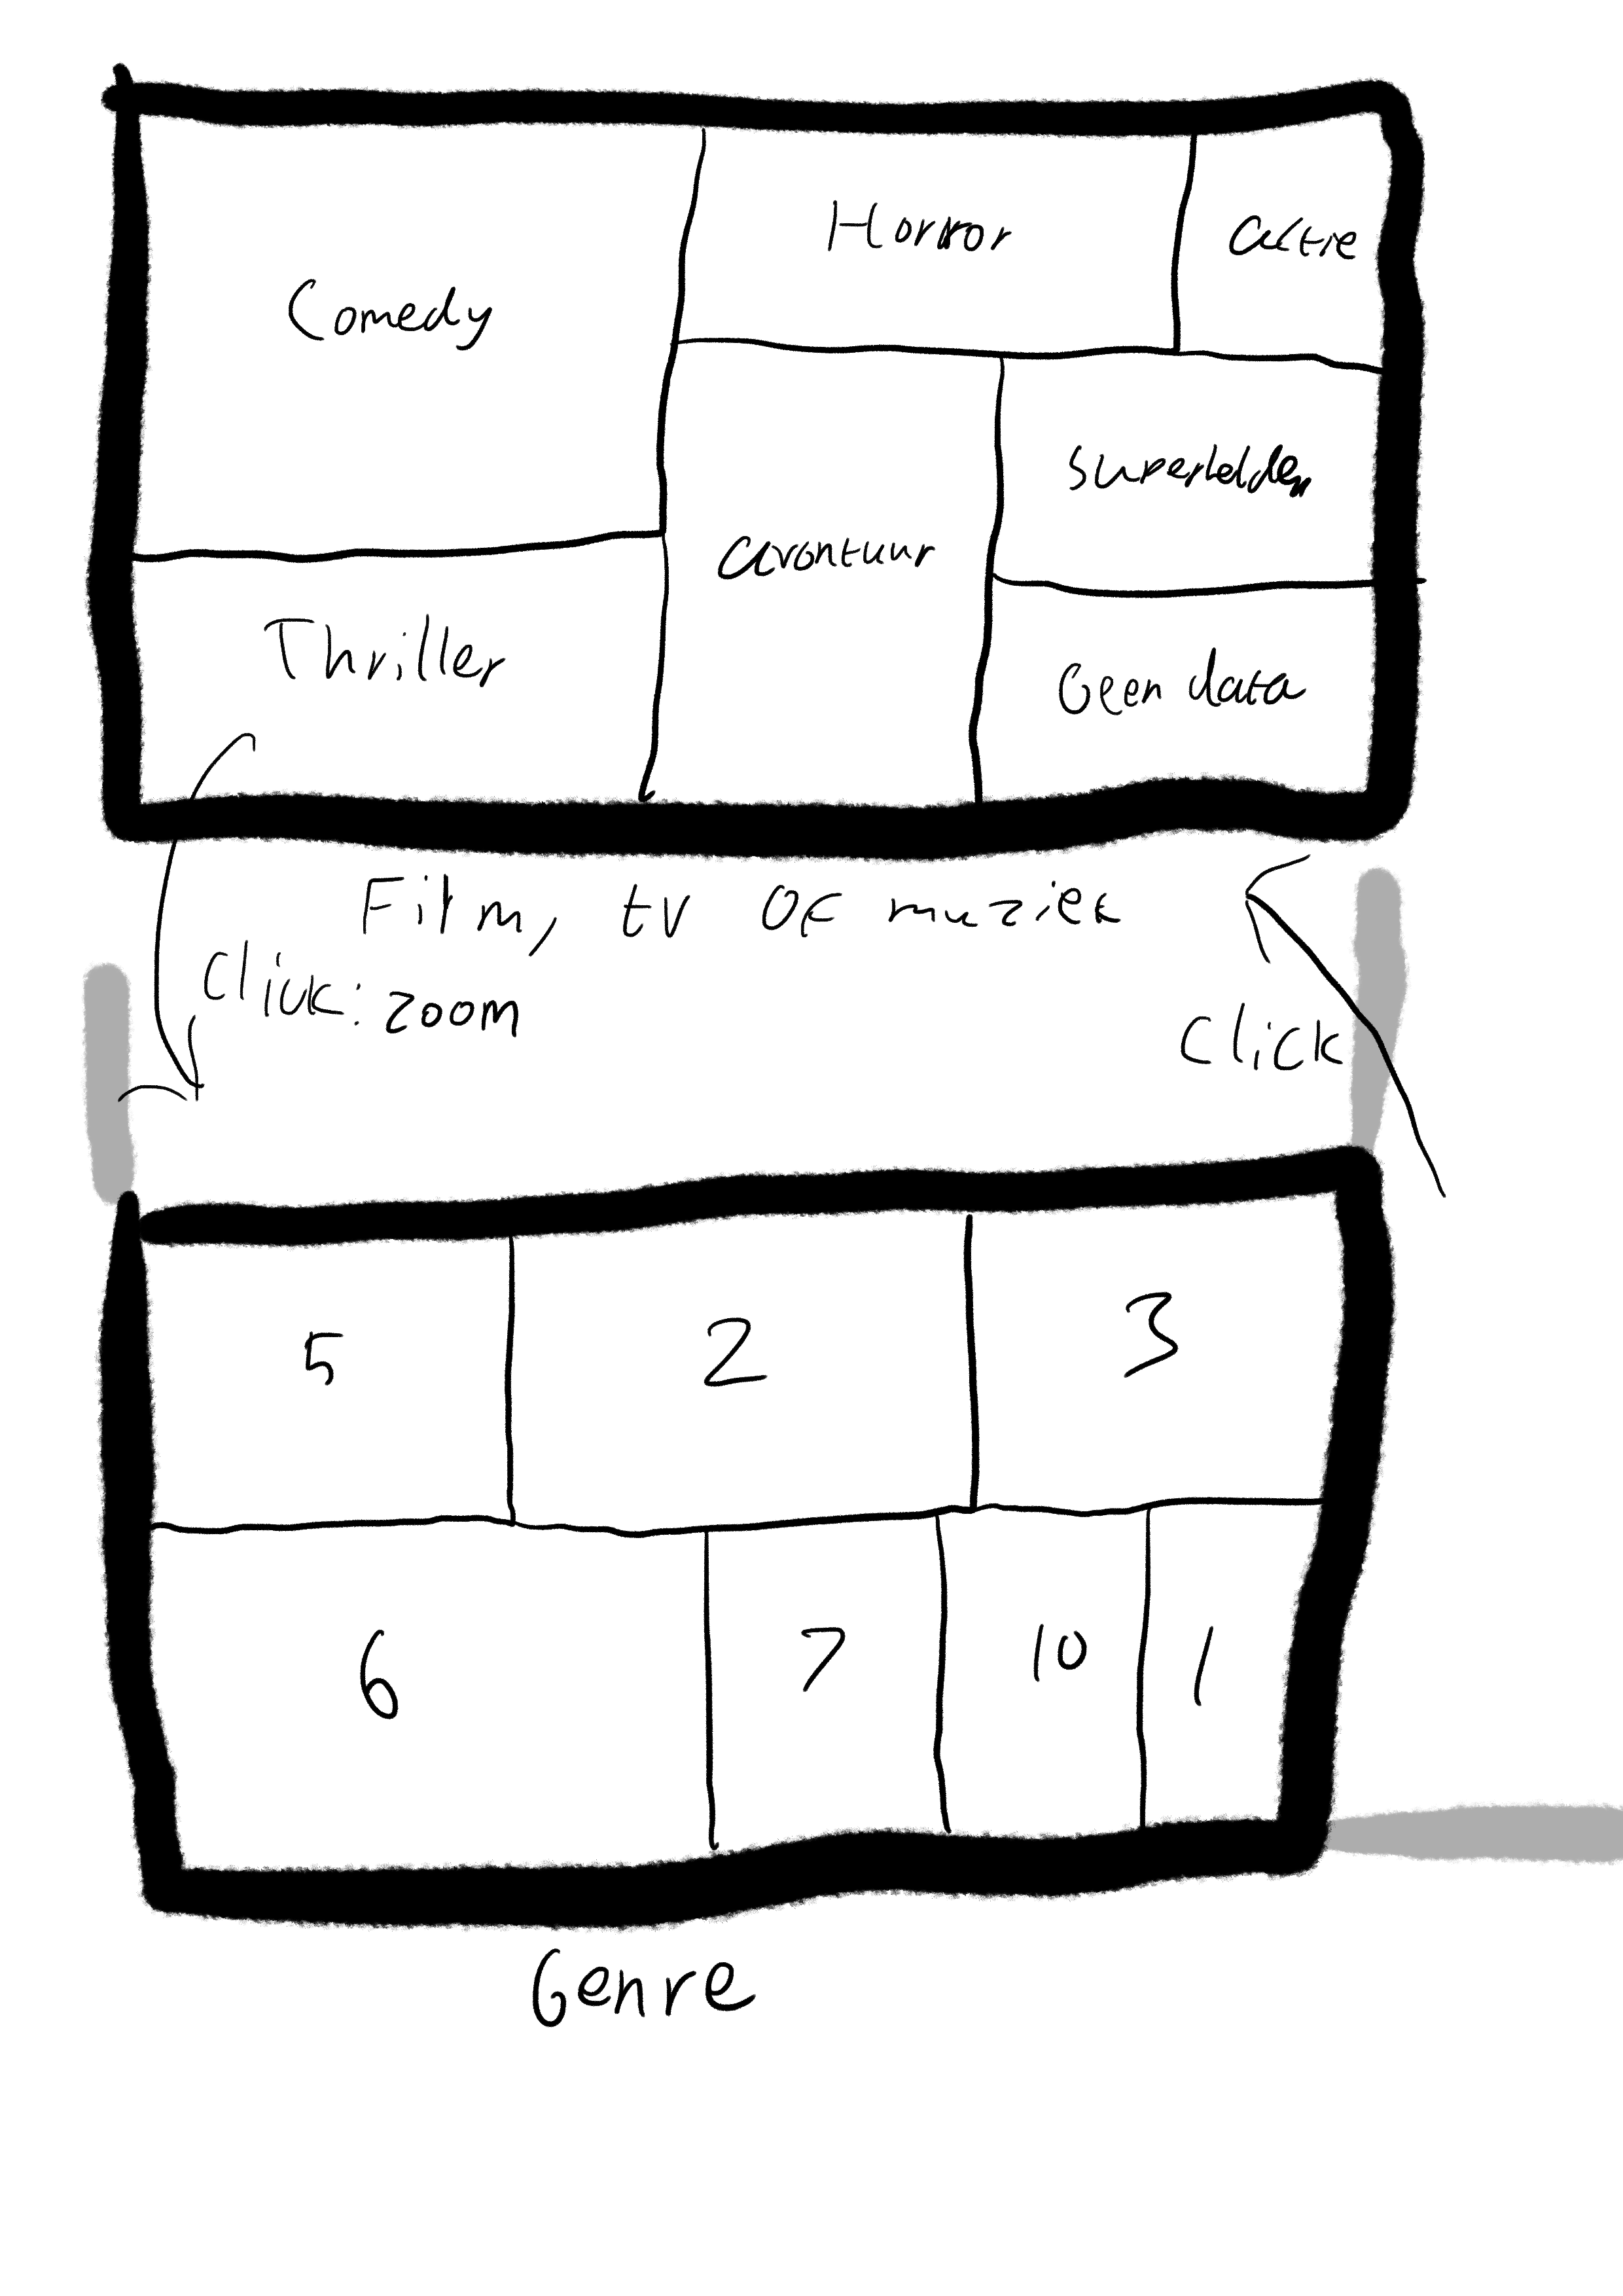 Comedy
Horror
actie
superhelden
avontuur
Thriller
Geen data
Film, tv of muziek
Click: zoom
Click
5 2 3
6 7 10 1
Genre